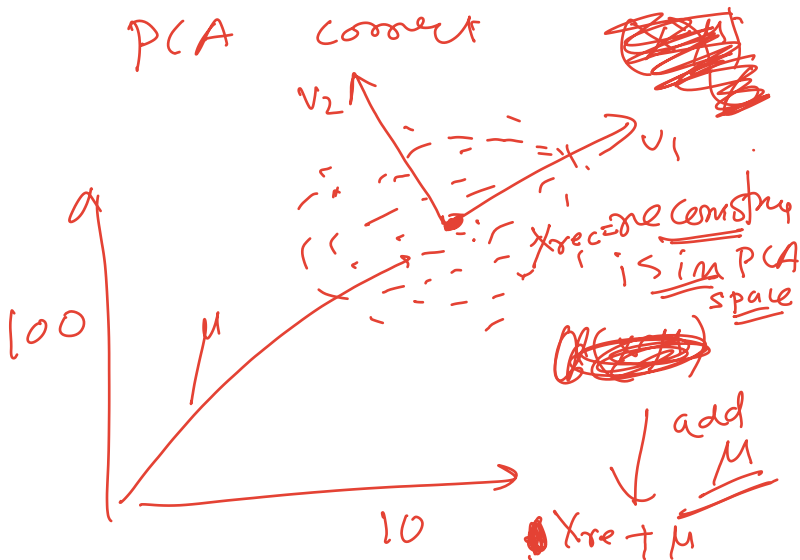 PCA correct
V2
V1
Xrec = reconstru
is in PCA
space
100
μ
add
μ
10
Xre + μ